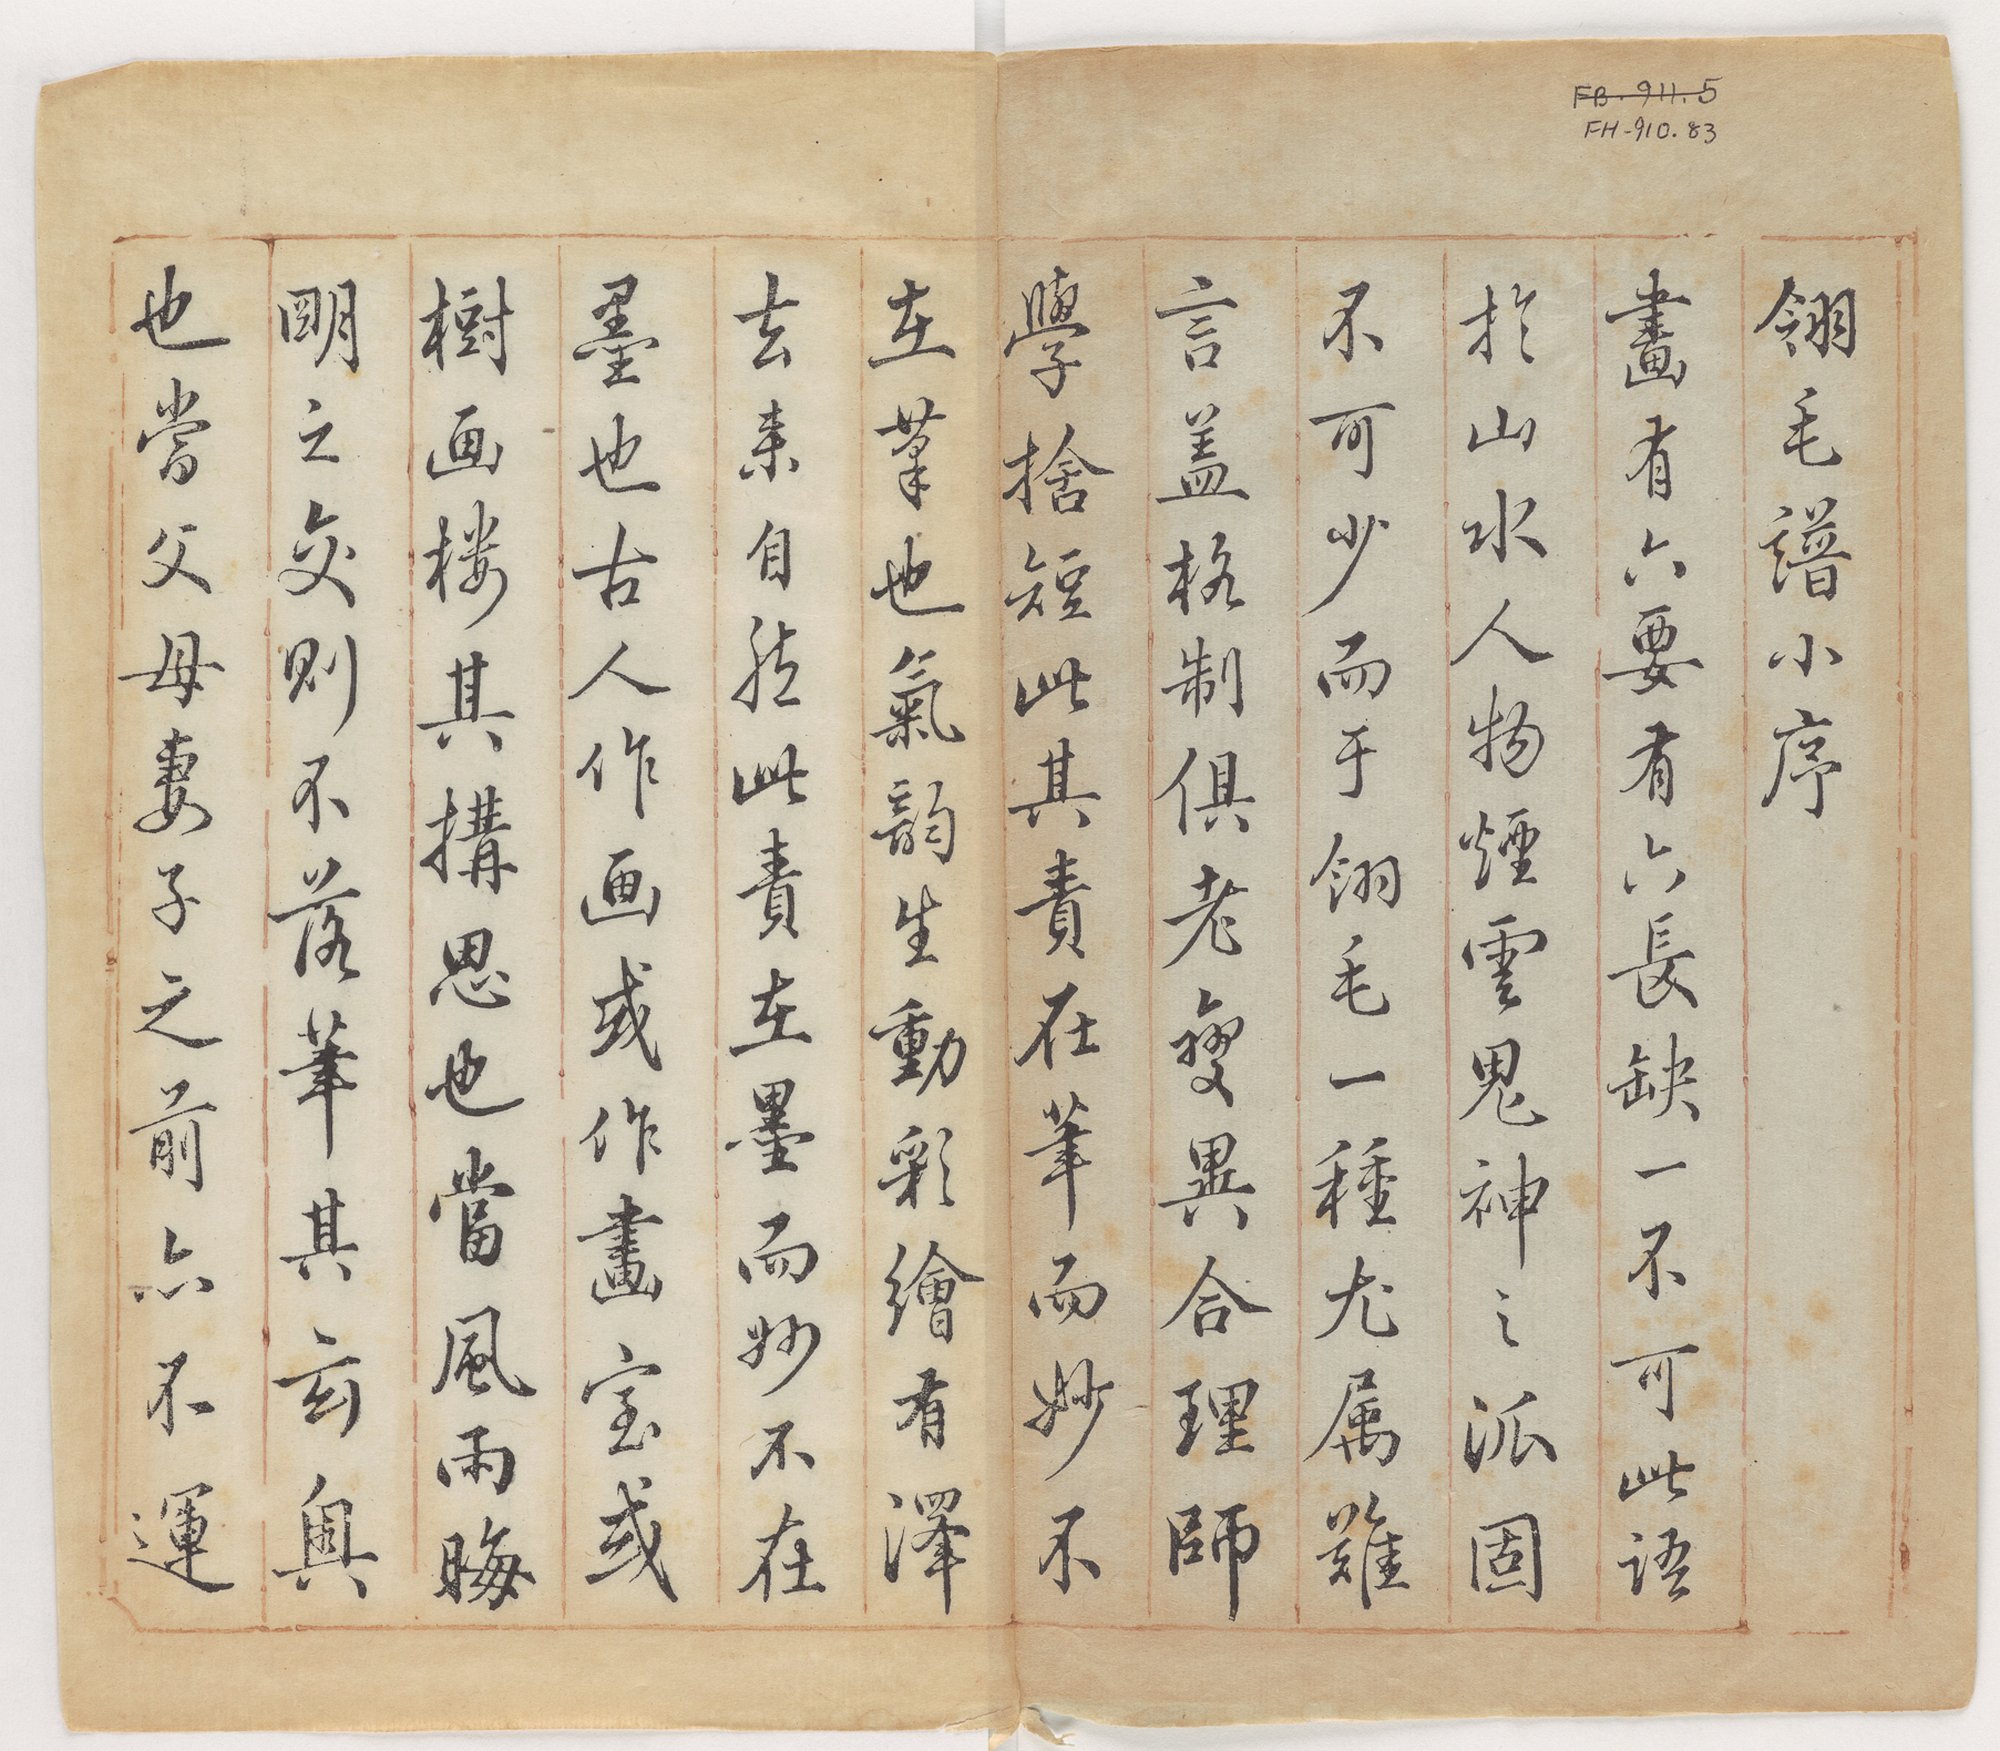 FB-911.5
FH-910.83
翎毛譜小序
畫有六要有六長缺一不可此語
於山水人物煙雲鬼神之派固
不可少而于翎毛一種尤属難
言盖格制俱老變異合理師
學捨短此其責在筆而妙不
在筆也氣韵生動彩繪有澤
去来自然此責在墨而妙不在
墨也古人作画或作畫室或
樹画楼其搆思也當風雨晦
明之交則不落筆其玄奥
也當父母妻子之前亦不運